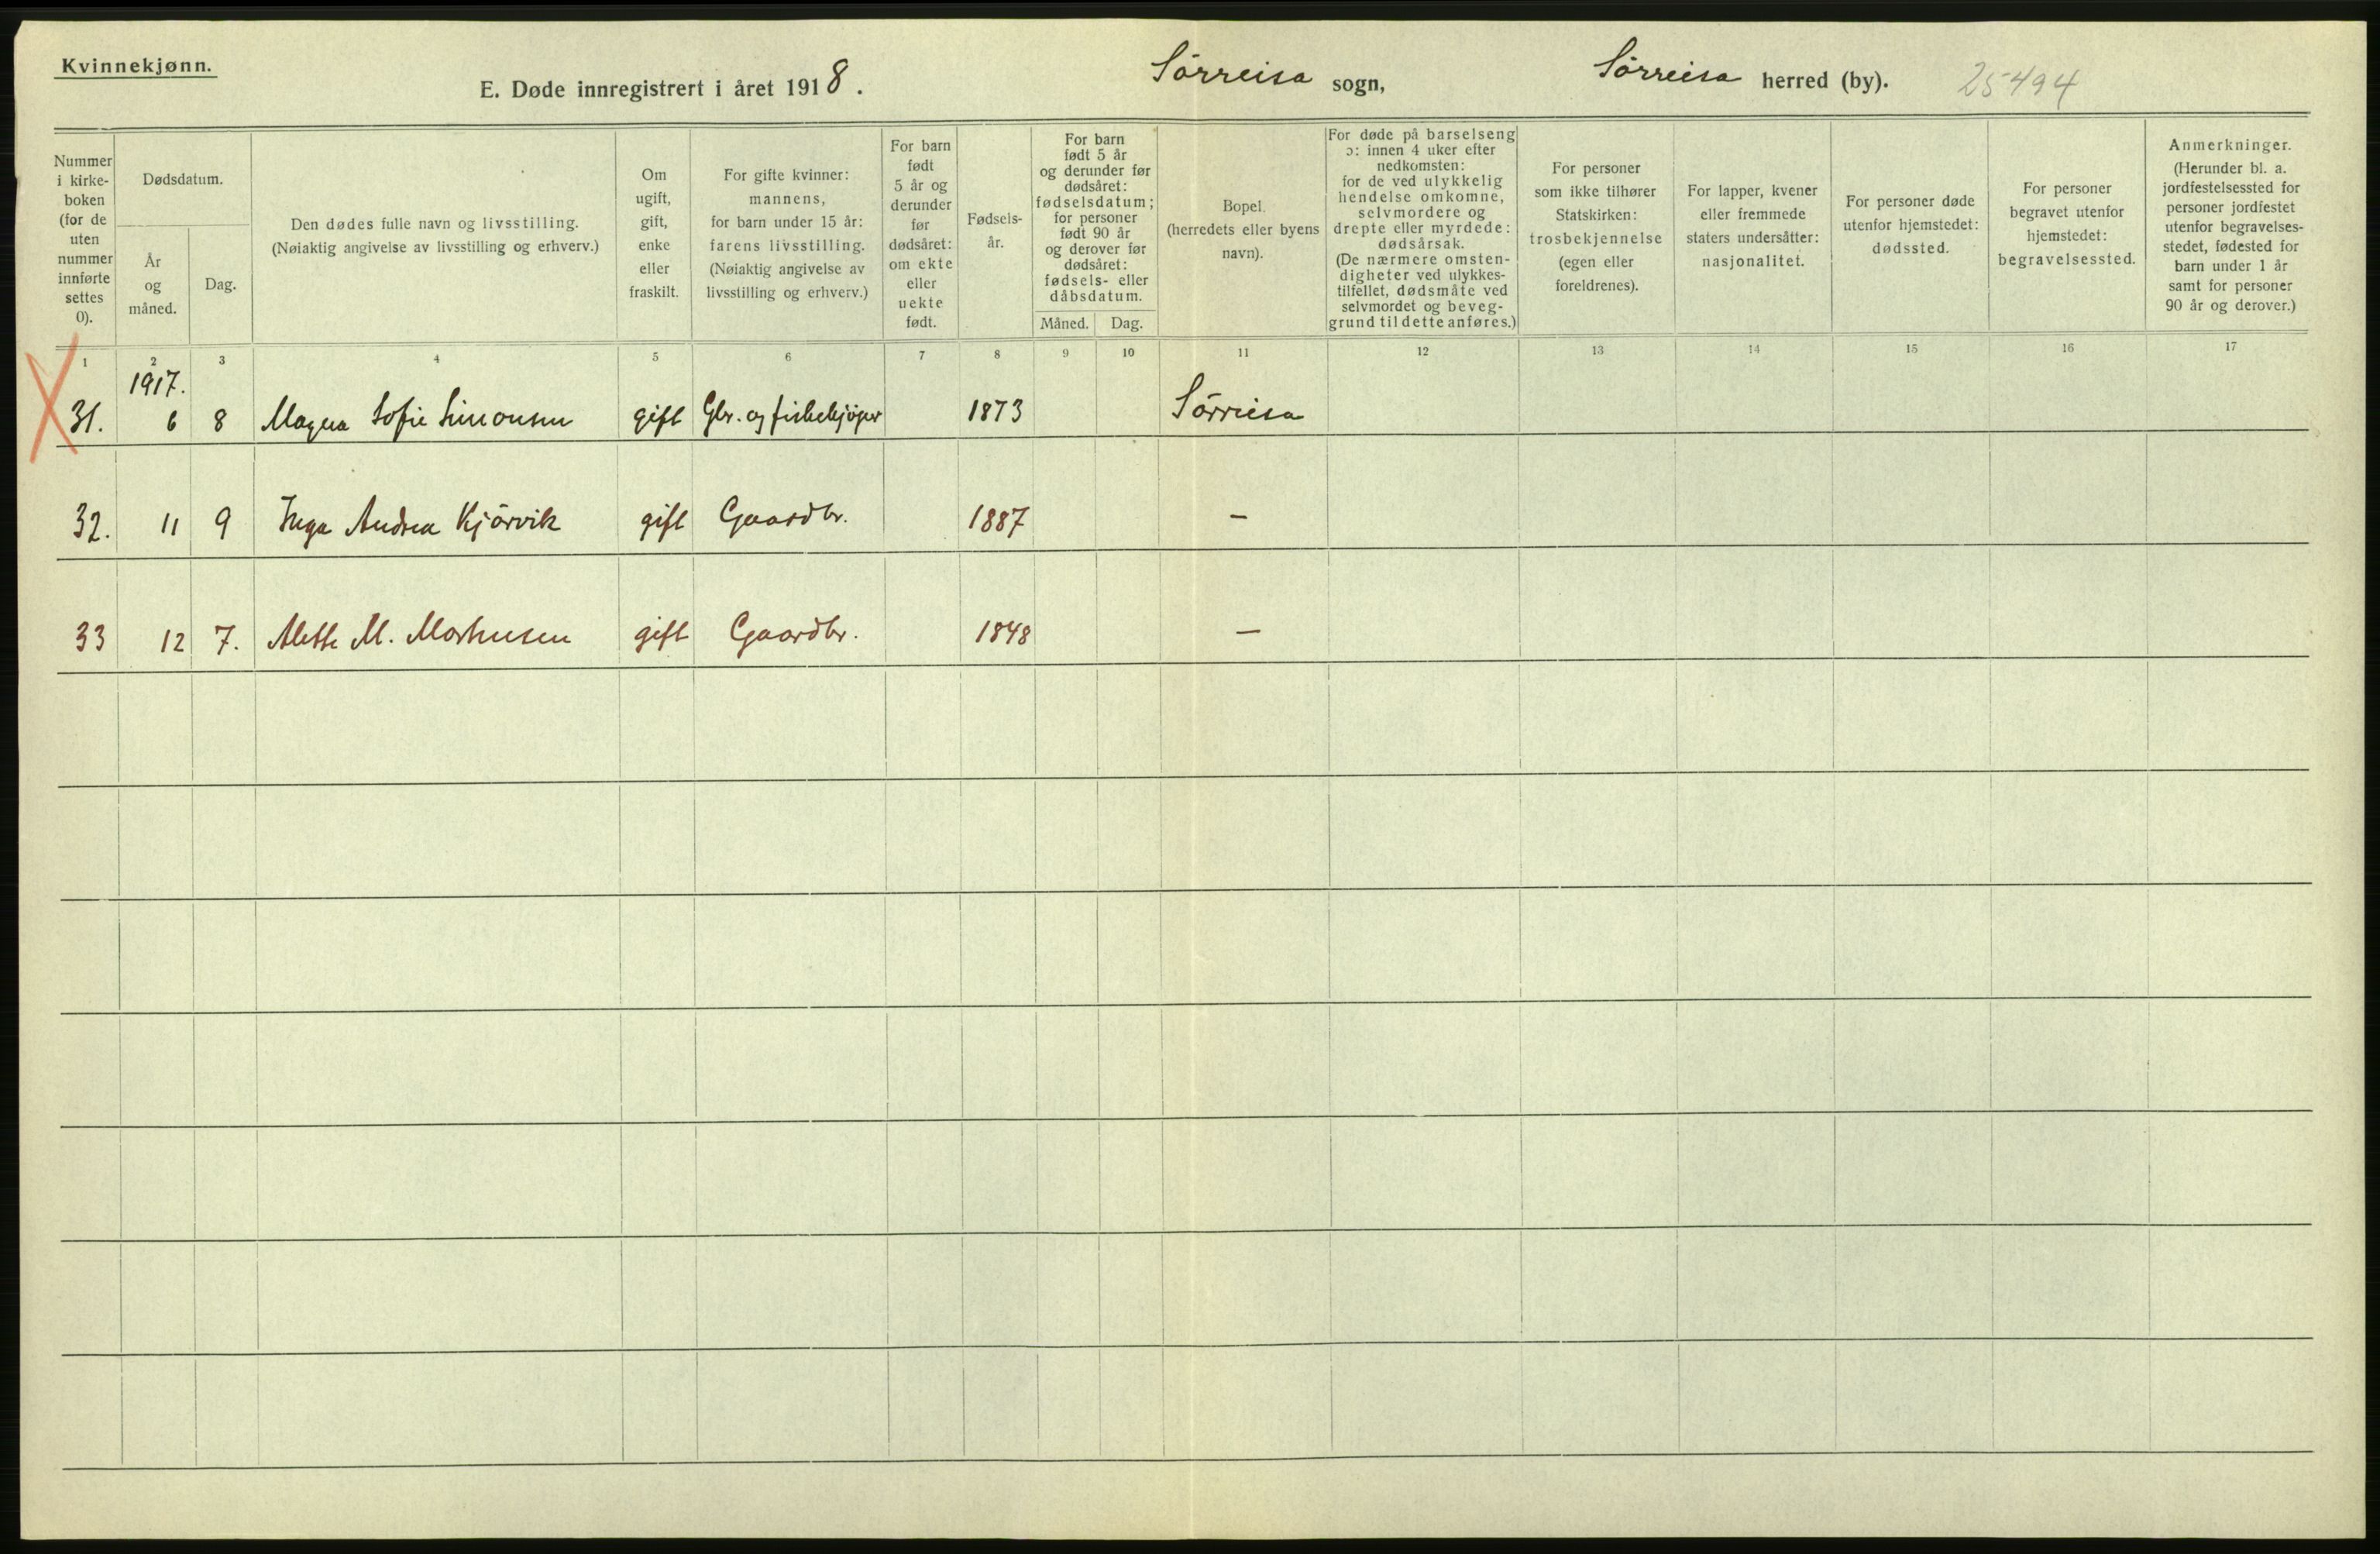 Kvinnekjønn.
E. Døde innregistrert i året 1918. Sörreisa sogn, Sörreisa herred (by). 25494
Nummer i kirke- boken (for de uten nummer innførte settes 0).
Dødsdatum.
År og måned.
Dag.
Den dødes fulle navn og livsstilling.
(Nøiaktig angivelse av livsstilling og erhverv.)
Om ugift, gift, enke eller fraskilt.
For gifte kvinner: mannens, for barn under 15 år: farens livsstilling.
(Nøiaktig angivelse av livsstilling og erhverv.)
For barn født 5 år og derunder før dødsåret: om ekte eller uekte født.
Fødsels- år.
For barn født 5 år og derunder før dødsåret: fødselsdatum; for personer født 90 år og derover før dødsåret: fødsels- eller dåbsdatum.
Måned.
Dag.
Bopel.
(herredets eller byens navn).
For døde på barselseng ɔ: innen 4 uker efter nedkomsten: for de ved ulykkelig hendelse omkomne, selvmordere og drepte eller myrdede: dødsårsak.
(De nærmere omsten- digheter ved ulykkes- tilfellet, dødsmåte ved selvmordet og beveg- grund til dette anføres.)
For personer som ikke tilhører Statskirken: trosbekjennelse (egen eller foreldrenes).
For lapper, kvener eller fremmede staters undersåtter: nasjonalitet.
For personer døde utenfor hjemstedet: dødssted.
For personer begravet utenfor hjemstedet: begravelsessted.
Anmerkninger.
(Herunder bl. a. jordfestelsessted for personer jordfestet utenfor begravelses- stedet, fødested for barn under 1 år samt for personer 90 år og derover.)
1 2 3 4 5 6 7 8 9 10 11 12 13 14 15 16 17
1917.
31. 6 8 Magna Sofie Simonsen gift Gbr. og fiskekjöper 1873 Sörreisa
32. 11 9 Inga Andrea Kjörvik gift Gaardbr. 1887 –
33 12 7. Mette M. Markusen gift Gaardbr. 1848 –